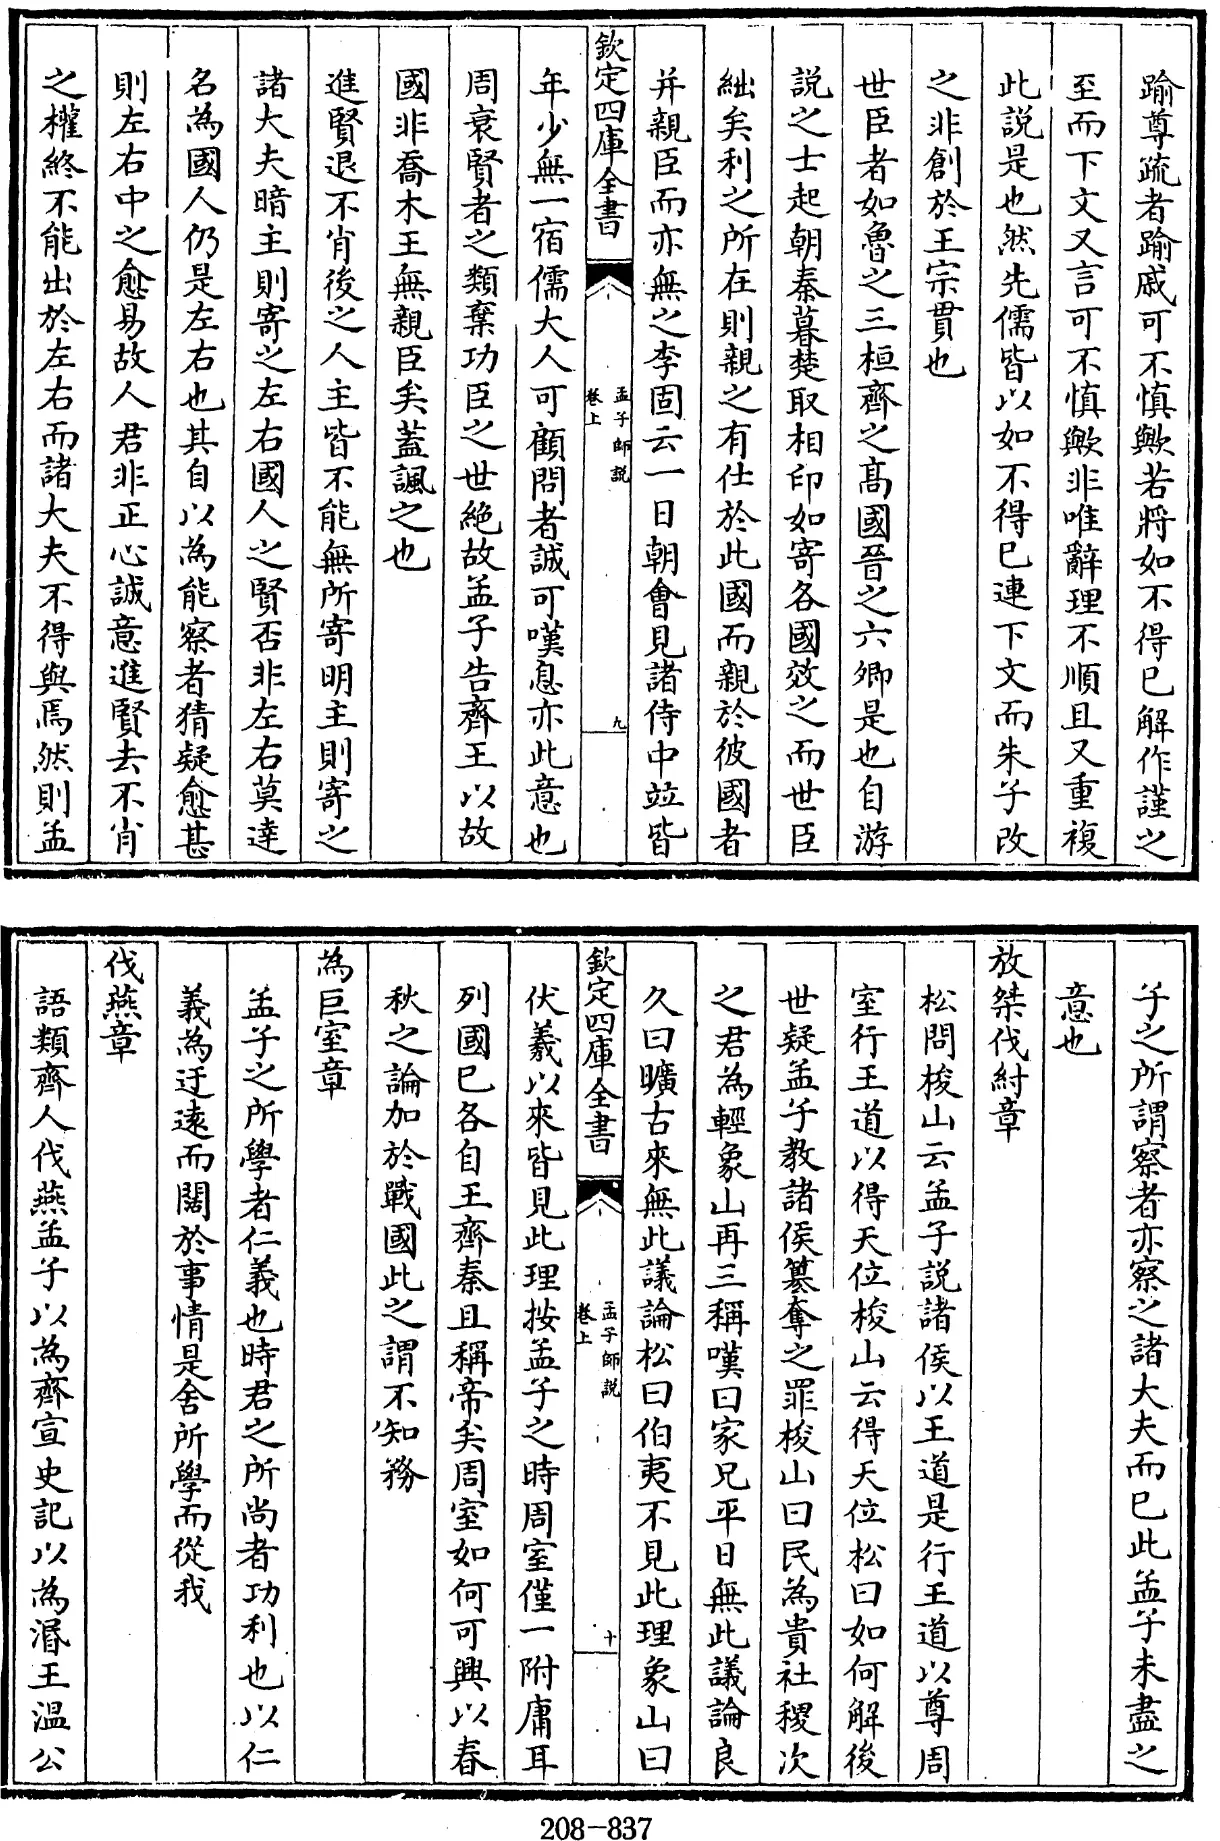 踰尊疏者踰戚可不慎歟若將如不得已解作謹之
至而下文又言可不慎歟非唯辭理不順且又重複
此説是也然先儒皆以如不得已連下文而朱子改
之非創於王宗貫也
世臣者如魯之三桓齊之髙國晉之六卿是也自游
説之士起朝秦暮楚取相印如寄各國效之而世臣
絀矣利之所在則親之有仕於此國而親於彼國者
并親臣而亦無之李固云一日朝會見諸侍中竝皆
欽定四庫全書
孟子師説
卷上
九
年少無一宿儒大人可顧問者誠可嘆息亦此意也
周衰賢者之類棄功臣之世絶故孟子告齊王以故
國非喬木王無親臣矣蓋諷之也
進賢退不肖後之人主皆不能無所寄明主則寄之
諸大夫暗主則寄之左右國人之賢否非左右莫達
名為國人仍是左右也其自以為能察者猜疑愈甚
則左右中之愈易故人君非正心誠意進賢去不肖
之權終不能出於左右而諸大夫不得與焉然則孟
子之所謂察者亦察之諸大夫而已此孟子未盡之
意也
放桀伐紂章
松問梭山云孟子説諸侯以王道是行王道以尊周
室行王道以得天位梭山云得天位松曰如何解後
世疑孟子教諸侯簒奪之罪梭山曰民為貴社稷次
之君為輕象山再三稱嘆曰家兄平日無此議論良
久曰曠古來無此議論松曰伯夷不見此理象山曰
欽定四庫全書
孟子師説
卷上
十
伏羲以來皆見此理按孟子之時周室僅一附庸耳
列國已各自王齊秦且稱帝矣周室如何可興以春
秋之論加於戰國此之謂不知務
為巨室章
孟子之所學者仁義也時君之所尚者功利也以仁
義為迂遠而闊於事情是舍所學而從我
伐燕章
語類齊人伐燕孟子以為齊宣史記以為湣王温公
208-837